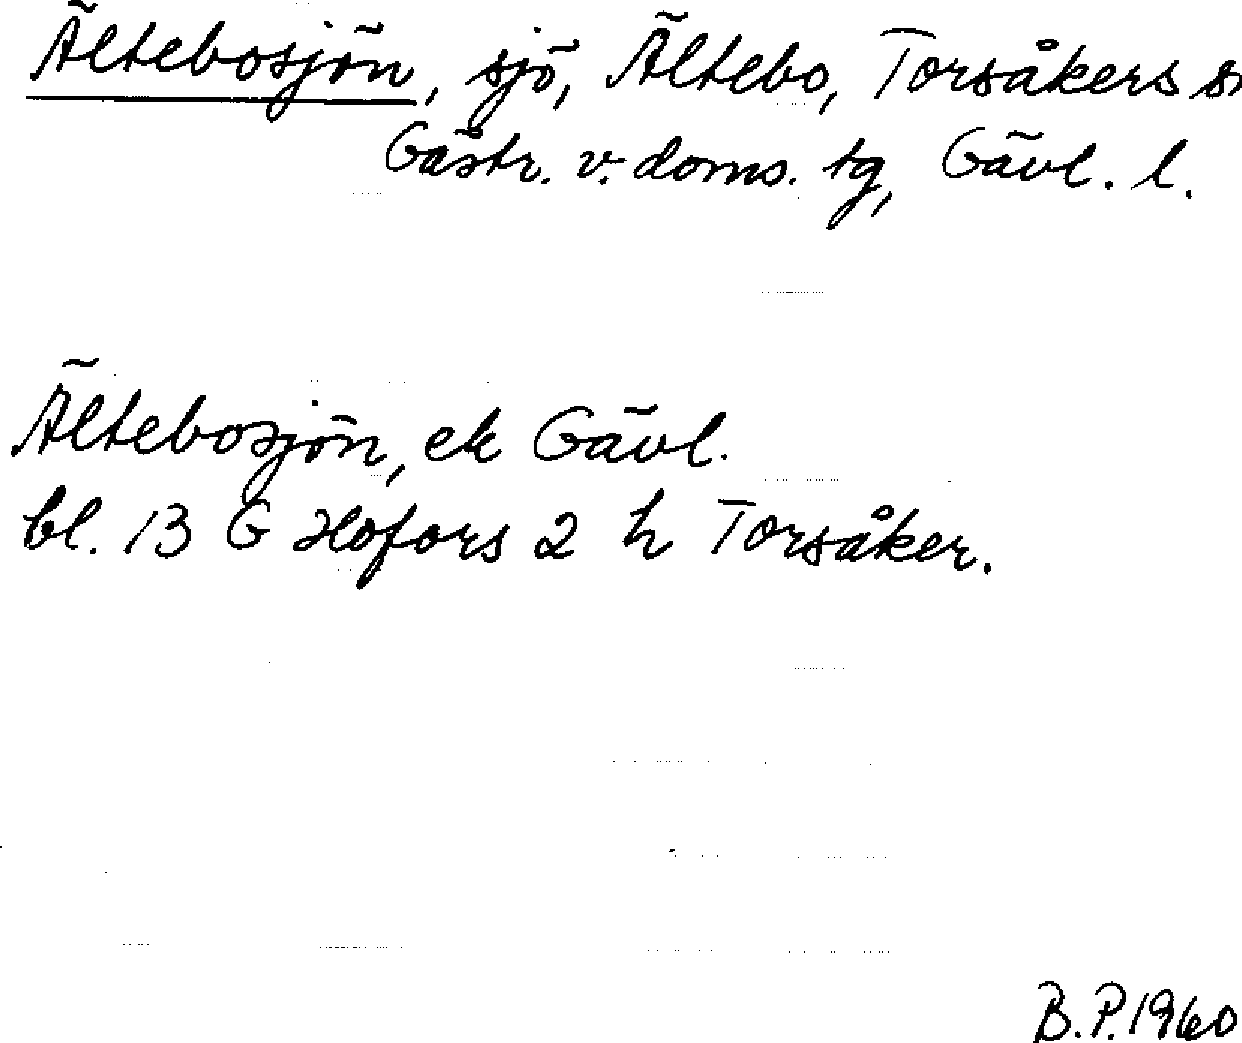 Ältebosjön, sjö, Ältebo, Torsåkers sn
Gästr. v. doms. tg, Gävl. l.
Ältebosjön, ek Gävl.
bl. 13 G Hofors 2 h Torsåker.
B.P. 1960